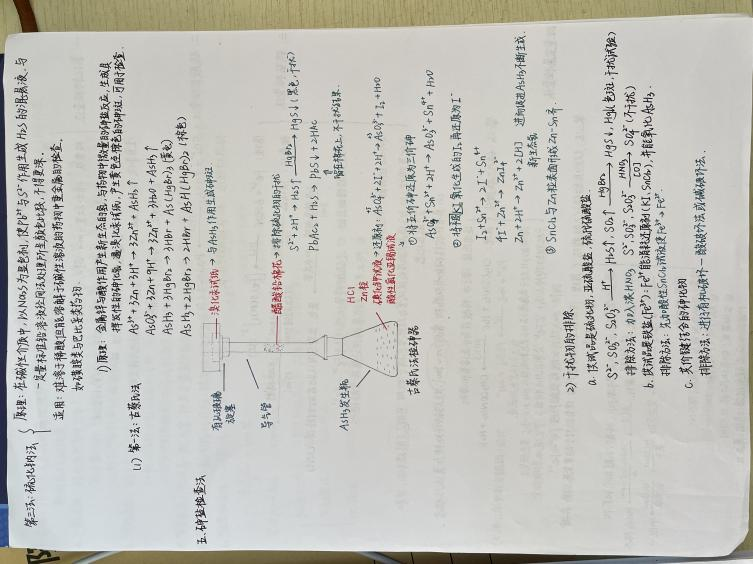 第三法：硫化钠法 { 原理：在碱性介质中，以Na₂S为显色剂，使Pb²⁺与S²⁻作用生成H₂S的混悬液，与
一定量标准铅溶液经同法处理所呈颜色比较，不得更深。
适用：难溶于稀酸但能溶解于碱性溶液的药物中重金属的检查。
如磺胺类与巴比妥类药物
五、砷盐检查法
(1) 第一法：古蔡氏法
1) 原理：金属锌与酸作用产生新生态的氢，与药物中微量的砷盐反应，生成具
挥发性的砷化氢，遇溴化汞试纸，产生黄色至棕色的砷斑，可用于检查。
As³⁺ + 3Zn + 3H⁺ → 3Zn²⁺ + AsH₃↑
AsO₃³⁻ + 3Zn + 9H⁺ → 3Zn²⁺ + 3H₂O + AsH₃↑
AsH₃ + 3HgBr₂ → 3HBr + As(HgBr)₃ (黄色)
AsH₃ + 2HgBr₂ → 2HBr + AsH(HgBr)₂ (棕色)
有孔玻璃
旋塞
导气管
AsH₃发生瓶
溴化汞试纸 → 与AsH₃作用生成砷斑
醋酸铅棉花 → 排除硫化物的干扰
S²⁻ + 2H⁺ → H₂S↑ HgBr₂→ HgS↓(黑色，干扰)
PbAc₂ + H₂S → PbS↓ + 2HAc
不干扰结果
HCl
Zn粒
碘化钾试液 → 还原剂：AsO₄³⁻ + 2I⁻ + 2H⁺ → AsO₃³⁻ + I₂ + H₂O
酸性氯化亚锡试液
古蔡氏法检砷器
① 将五价砷还原为三价砷
AsO₄³⁻ + Sn²⁺ + 2H⁺ → AsO₃³⁻ + Sn⁴⁺ + H₂O
② 将被氧化生成的I₂再还原为I⁻
I₂ + Sn²⁺ → 2I⁻ + Sn⁴⁺
4I⁻ + Zn²⁺ → ZnI₄²⁻
Zn + 2H⁺ → Zn²⁺ + 2[H] 进而促进AsH₃不断生成
新生态氢
③ SnCl₂与Zn粒表面形成Zn-Sn齐
2) 干扰物的排除
a. 供试品是硫化物，亚硫酸盐，硫代硫酸盐
S²⁻, SO₃²⁻, S₂O₃²⁻ H⁺→ H₂S↑, SO₂↑ HgBr₂→ HgS↓, Hg(色斑，干扰试验)
排除办法：加入浓HNO₃ S²⁻ SO₃²⁻ S₂O₃²⁻ HNO₃→ [O] SO₄²⁻ (不干扰)
b. 供试品是铁盐(Fe³⁺)：Fe³⁺能消耗还原剂(KI, SnCl₂)，并能氧化AsH₃
排除办法：先加酸性SnCl₂试液使Fe³⁺→Fe²⁺
c. 共价键结合的砷化物
排除办法：进行有机破坏—酸破坏法或碱破坏法。